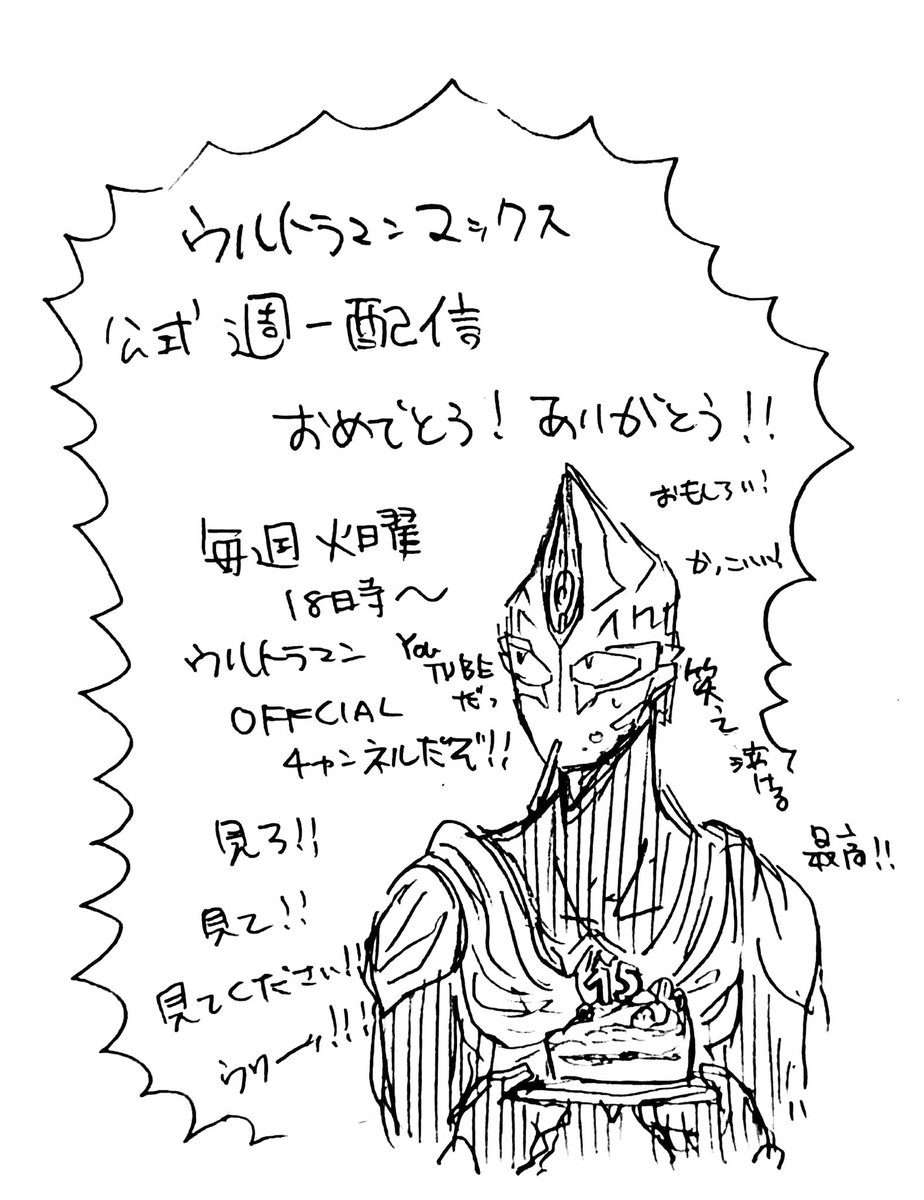 ウルトラマンマックス
公式週一配信
おめでとう！ありがとう！！
おもしろい！
かっこいい！
笑え
泣ける
最高！！
毎週火曜
18時〜
ウルトラマン
OFFCIAL
チャンネルだぞ！！
YOU
TUBE
だっ
見ろ！！
見て！！
見てください！！
ウリーッ！！！
15